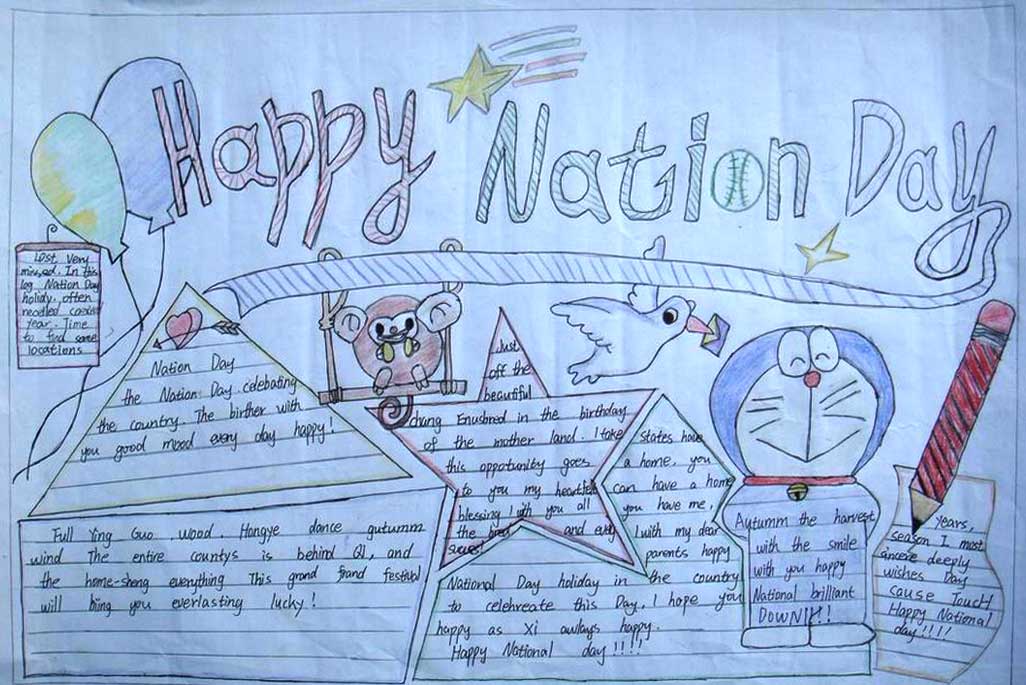 Happy Nation Day
Lost very
missed. In this
log Nation Day
holidy, often
needled
year. Time
to find some
locations
Nation Day
the Nation Day celebrating
the country. The birther with
you good mood every day happy!
Full Ying Guo wood. Hongye dance gutumm
wind The entire countys is behind QI, and
the home-sheng everything This grand frand festival
will biing you everlasting lucky!
Just
off the
beautiful
chang Enusbred in the birthday
of the mother land. I take
this oppotunity goes
to you my heartfelt
blessing I with you all
the bread and every
success!
States have
a home, you
can have a home
you have me,
I with my dear
parents happy
National Day holiday in the country
to celehreate this Day, I hope you
happy as Xi awlays happy.
Happy National day!!!!
Autumm the harvest
with the smile
with you happy
National brilliant
DOWN!H!
years,
season I most
sincere deeply
wishes Day
cause ToucH
Happy National
day!!!!